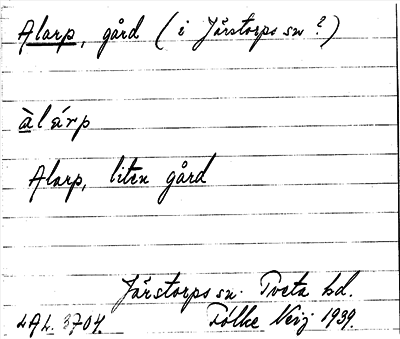 Alarp, gård (i Järstorps sn?)
àlárp
Alarp, liten gård
Järstorps sn. Tveta hd.
LAL. 3704. Fölke Neij 1939.